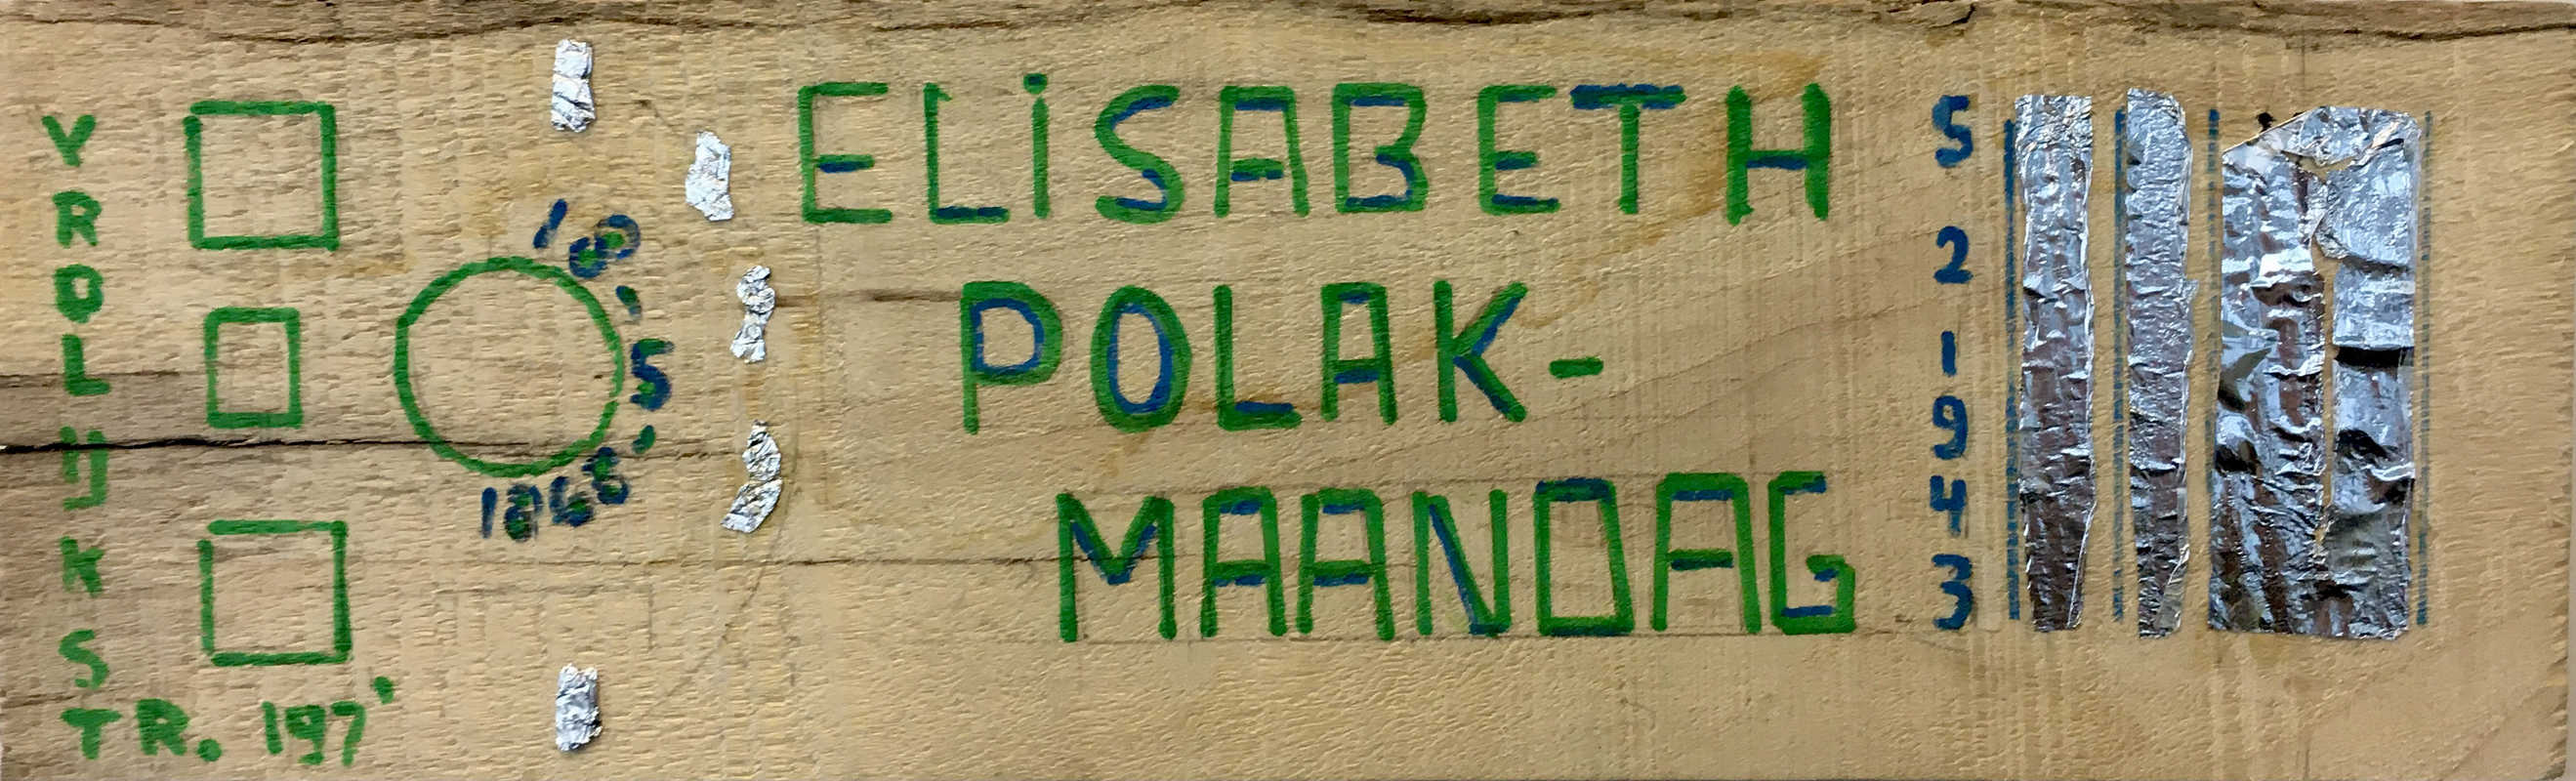 VROLIJKS
TR. 197'
18.5.1868
ELİSABETH
POLAK-
MAANDAG
5 2 1943